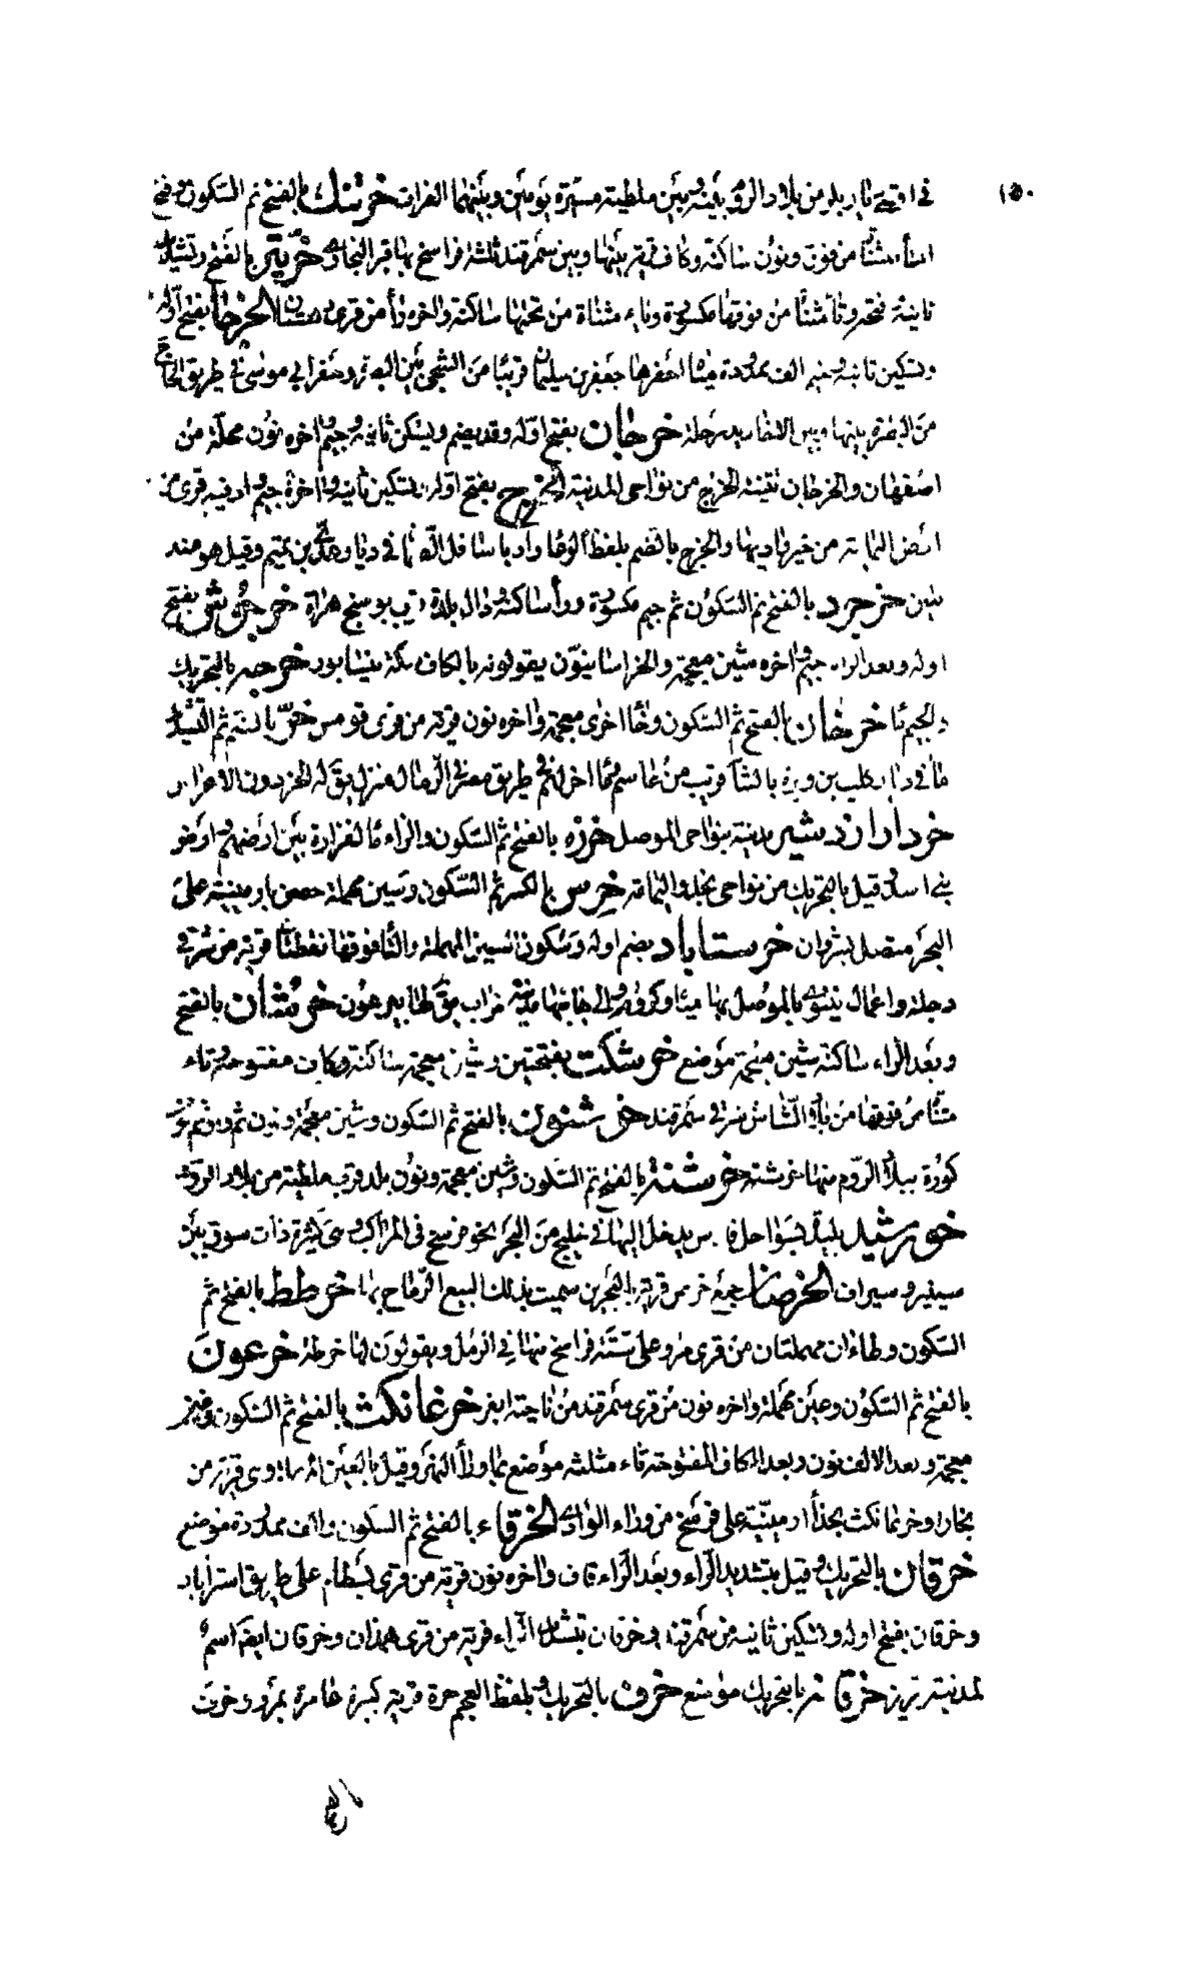 ١٥٠
في اقصى ديار بكر من بلاد الروم بينه وبين ملطية مسيرة يومين وبينهما الفرات خرتنك بالفتح ثم السكون وفتح
مثناة من فوق ونون ساكنة وكاف قرية بينها وبين سمرقند ثلثة فراسخ بها قبر البخاري خرتير بالفتح وتشديد
ثانيه وتاء مثناة من فوقها مكسورة وياء مثناة من تحتها ساكنة واخره راء من قرى دهستان الخرجاء بفتح اوله
وتسكين ثانيه وجيم الف ممدودة ماء احفرها جعفر بن سليمان قريبا من الشجى بين البصرة وحفر ابي موسى في طريق الحاج
من البصرة بينها وبين مرحلة خرجان بفتح اوله وقد يضم وتسكين ثانيه وجيم واخره نون محلة من
اصفهان والخرجان تثنية الخرج من نواحي المدينة الخرج بفتح اوله وتسكين ثانيه واخره جيم واد فيه قرى من
ارض اليمامة من خير واديها والخرج بالضم بلفظ الوعاء واد باسافل الدهنا في ديار عدي بن تميم وقيل هو عند
يلبن خرجرد بالفتح ثم السكون ثم جيم مكسورة وراء ساكنة ودال بلدة قرب بوسنج هراة خرجوش بفتح
اوله وبعد الراء جيم واخره شين معجمة والخراسانيون يقولونه بالكاف سكة بنيسابور خرجة بالتحريك
والجيم ماء خرخان بالفتح ثم السكون وخاء اخرى معجمة واخره نون قرية من قرى قومس خر بالضم ثم التشديد
ماء في ديار كلب بن وبرة بالشام قريب من عاسم ماء اخر لهم في طريق مصر في الرمال منزل يقال له الخر دون الاعراس
خرداران اردشير مدينة بنواحي الموصل خرزه بالفتح ثم السكون والزاء ماء لفزارة بين ارضهم وارض
بني اسد وقيل بالتحريك من نواحي نجد واليمامة خرس بالكسر ثم السكون وسين مهملة حصن بارمينية على
البحر متصل بشروان خرستاباد بضم اوله وسكون السين المهملة والتا فوقها نقطتان قرية من شرقي
دجلة واعمال نينوى بالموصل بها مياه وكروم والى جانبها مدينة خراب يقال لها صرعون خرشان بالفتح
وبعد الراء ساكنة شين معجمة موضع خرشكت بفتحتين وشين معجمة ساكنة وكاف مفتوحة وتاء
مثناة من فوقها من بلاد الشاش شرقي سمرقند خرشنون بالفتح ثم السكون وشين معجمة ونون ثم واو ثم نون
كورة ببلاد الروم منها خرشنة خرشنة بالفتح ثم السكون وشين معجمة ونون بلد قرب ملطية من بلاد الروم
خورشيد بليدة بسواحل فارس يدخل اليها في خليج من البحر نحو فرسخ في المراكب وهي كبيرة ذات سوق بين
سينيز وسيراف الخرصان جمع خرص قرية بالبحرين سميت بذلك لبيع الرماح بها خرطط بالفتح ثم
السكون وطاءان مهملتان من قرى مرو على ستة فراسخ منها في الرمل ويقولون لها خرطة خرعون
بالفتح ثم السكون وعين مهملة واخره نون من قرى سمرقند من ناحية ابغر خرغانكث بالفتح ثم السكون وغين
معجمة وبعد الالف نون وبعد الكاف المفتوحة ثاء مثلثة موضع بما وراء النهر وقيل بالعين وهي قرية من
بخارا وخرغانكث بحذاء ارمينية على فرسخ من وراء الوادي الخرقاء بالفتح ثم السكون والف ممدودة موضع
خرقان بالتحريك وقيل بتشديد الراء وبعد الراء قاف واخره نون قرية من قرى بسطام على طريق استراباد
وخرقان بفتح اوله وتسكين ثانيه من سمرقند وخرقان بتشديد الراء قرية من قرى همذان وخرقان ايضا اسم
لمدينة تبريز خرقانة بالتحريك موضع خرق بالتحريك وبلفظ العجم خره قرية كبيرة عامرة بمرو وخرت